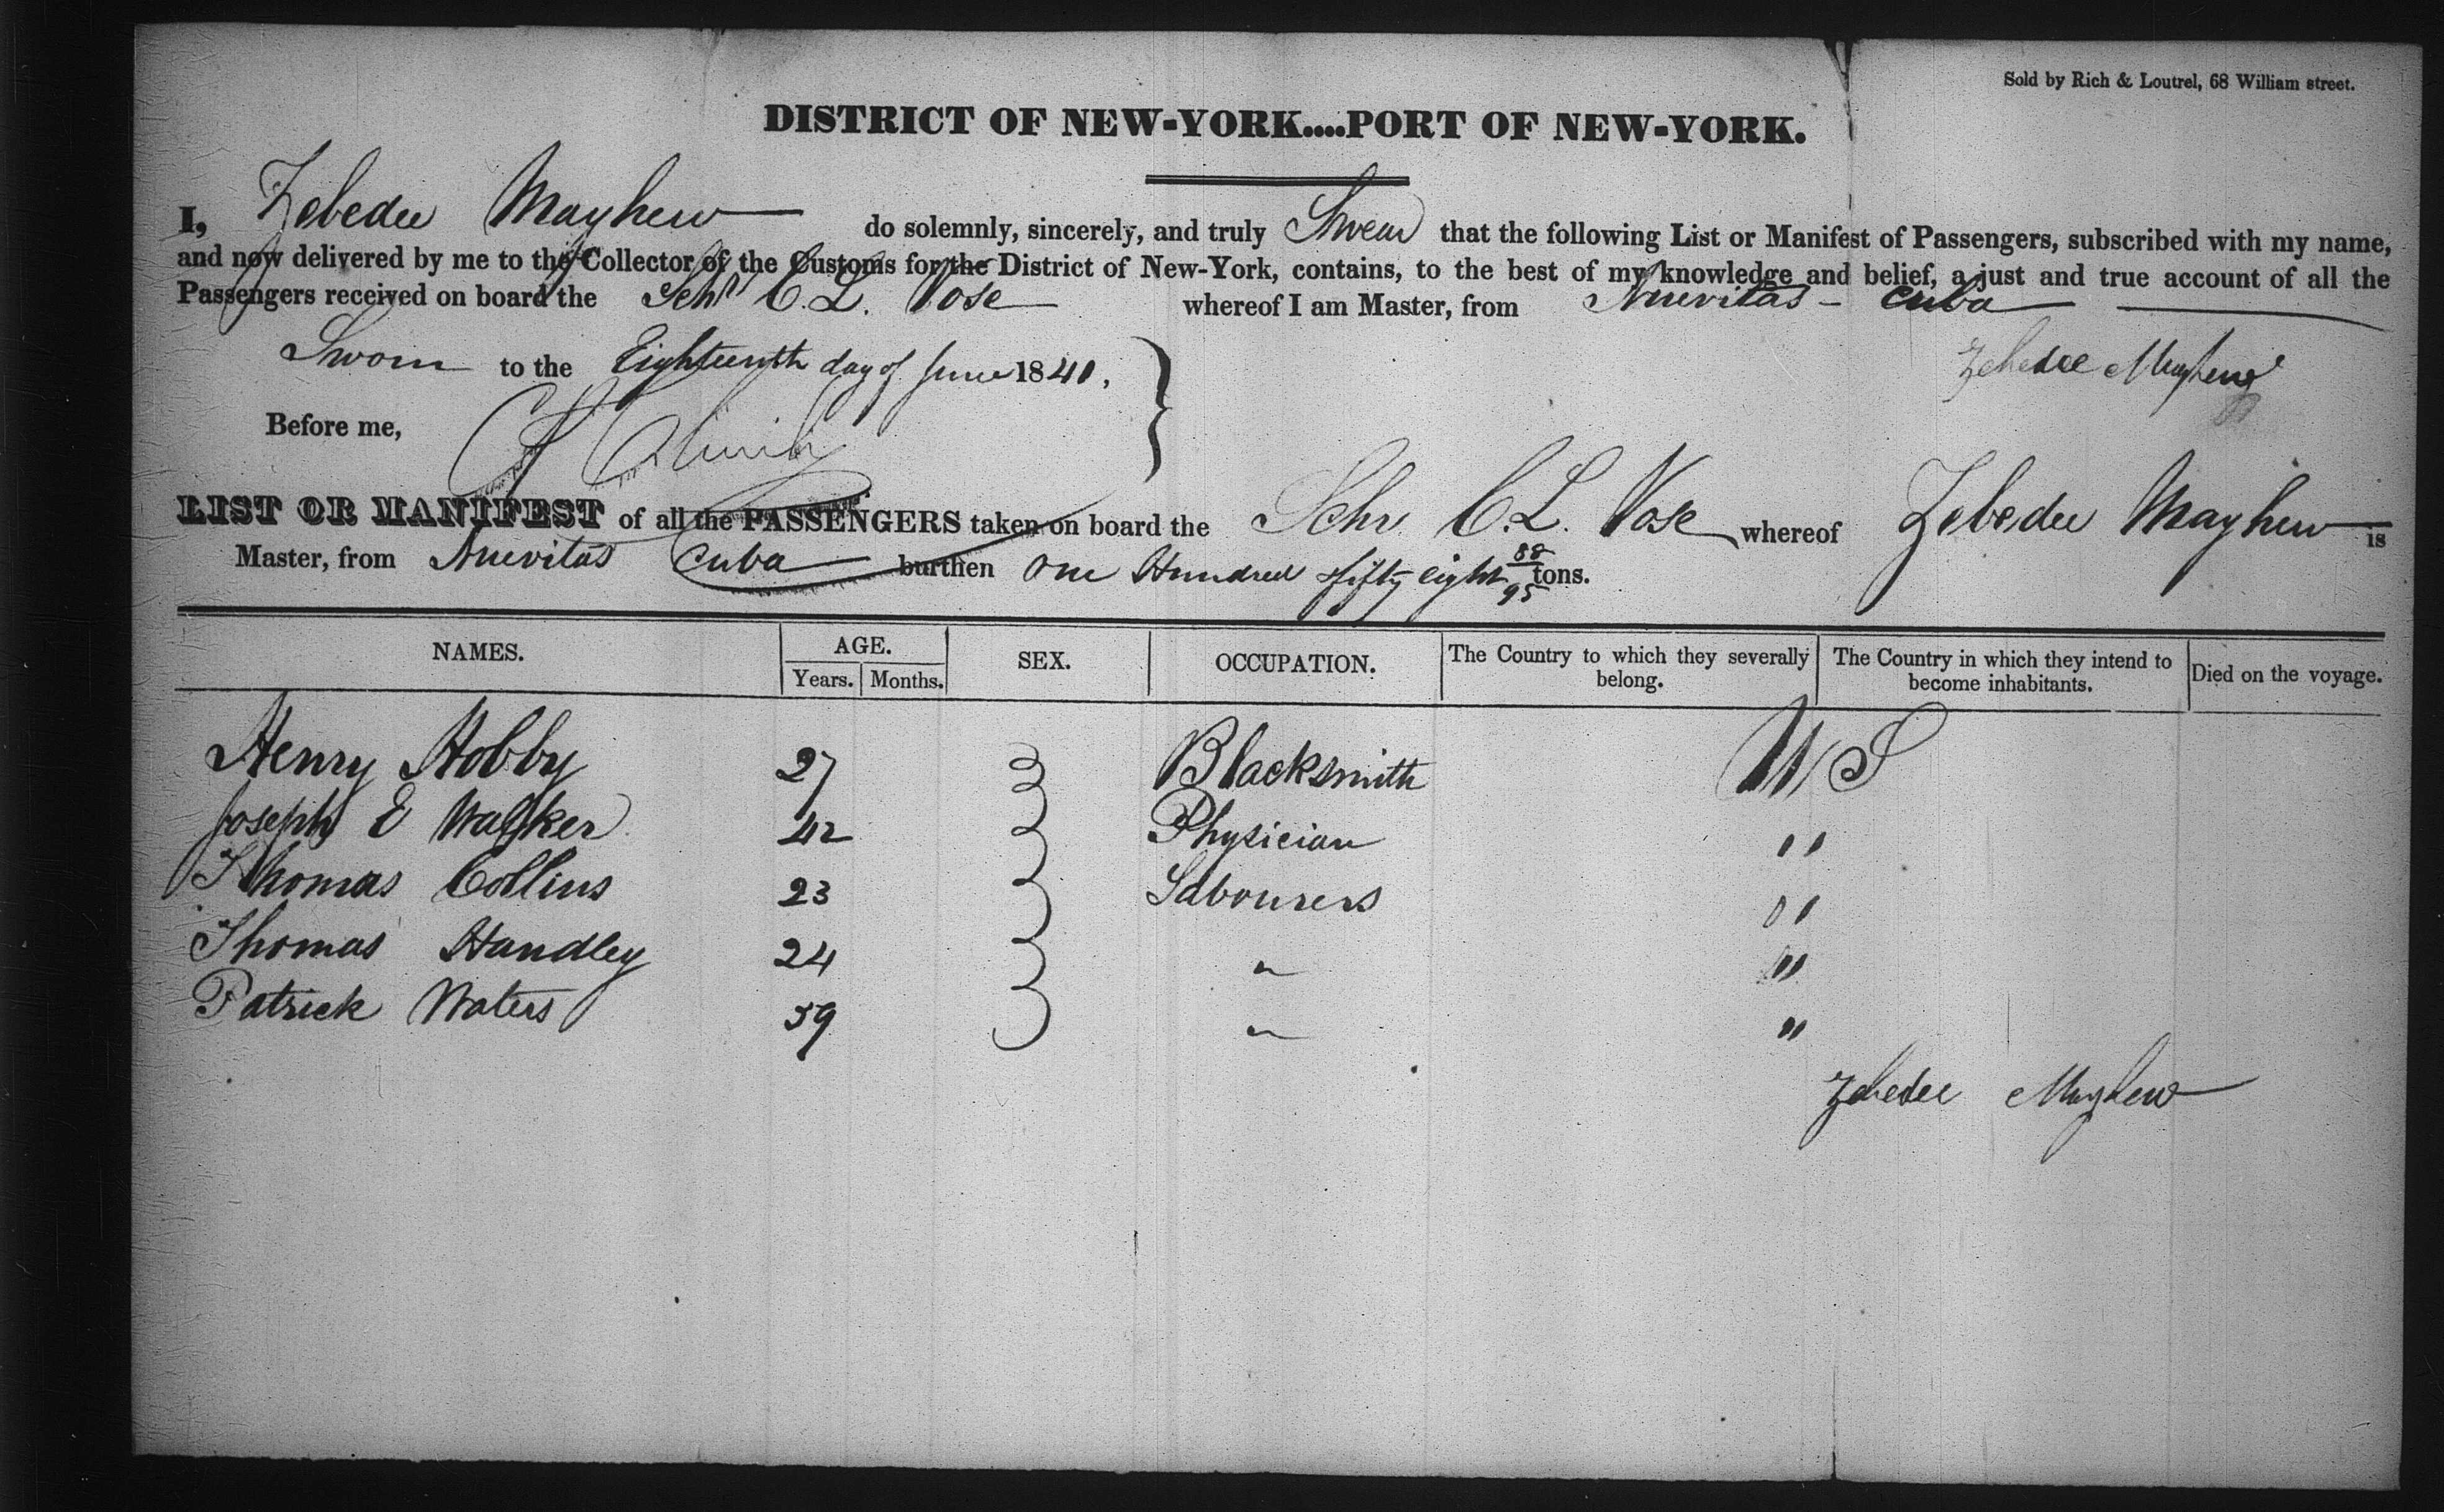 Sold by Rich & Loutrel, 68 William street.
DISTRICT OF NEW-YORK....PORT OF NEW-YORK.
I, Zebedee Mayhew do solemnly, sincerely, and truly Swear that the following List or Manifest of Passengers, subscribed with my name,
and now delivered by me to the Collector of the Customs for the District of New-York, contains, to the best of my knowledge and belief, a just and true account of all the
Passengers received on board the Schr C. L. Vose whereof I am Master, from Nuevitas - Cuba
Sworn to the Eighteenth day of June 1840.
Zebedee Mayhew
Before me,
LIST OR MANIFEST of all the PASSENGERS taken on board the Schr. C. L. Vose whereof Zebedee Mayhew is
Master, from Nuevitas Cuba burthen One Hundred fifty eight 88/95 tons.
NAMES. AGE. SEX. OCCUPATION. The Country to which they severally belong. The Country in which they intend to become inhabitants. Died on the voyage.
Years. Months.
Henry Hobby 27 Blacksmith U S
Joseph E Walker 42 Physician " "
Thomas Collins 23 Labourers " "
Thomas Handley 24 " "
Patrick Waters 39 " "
Zebedee Mayhew